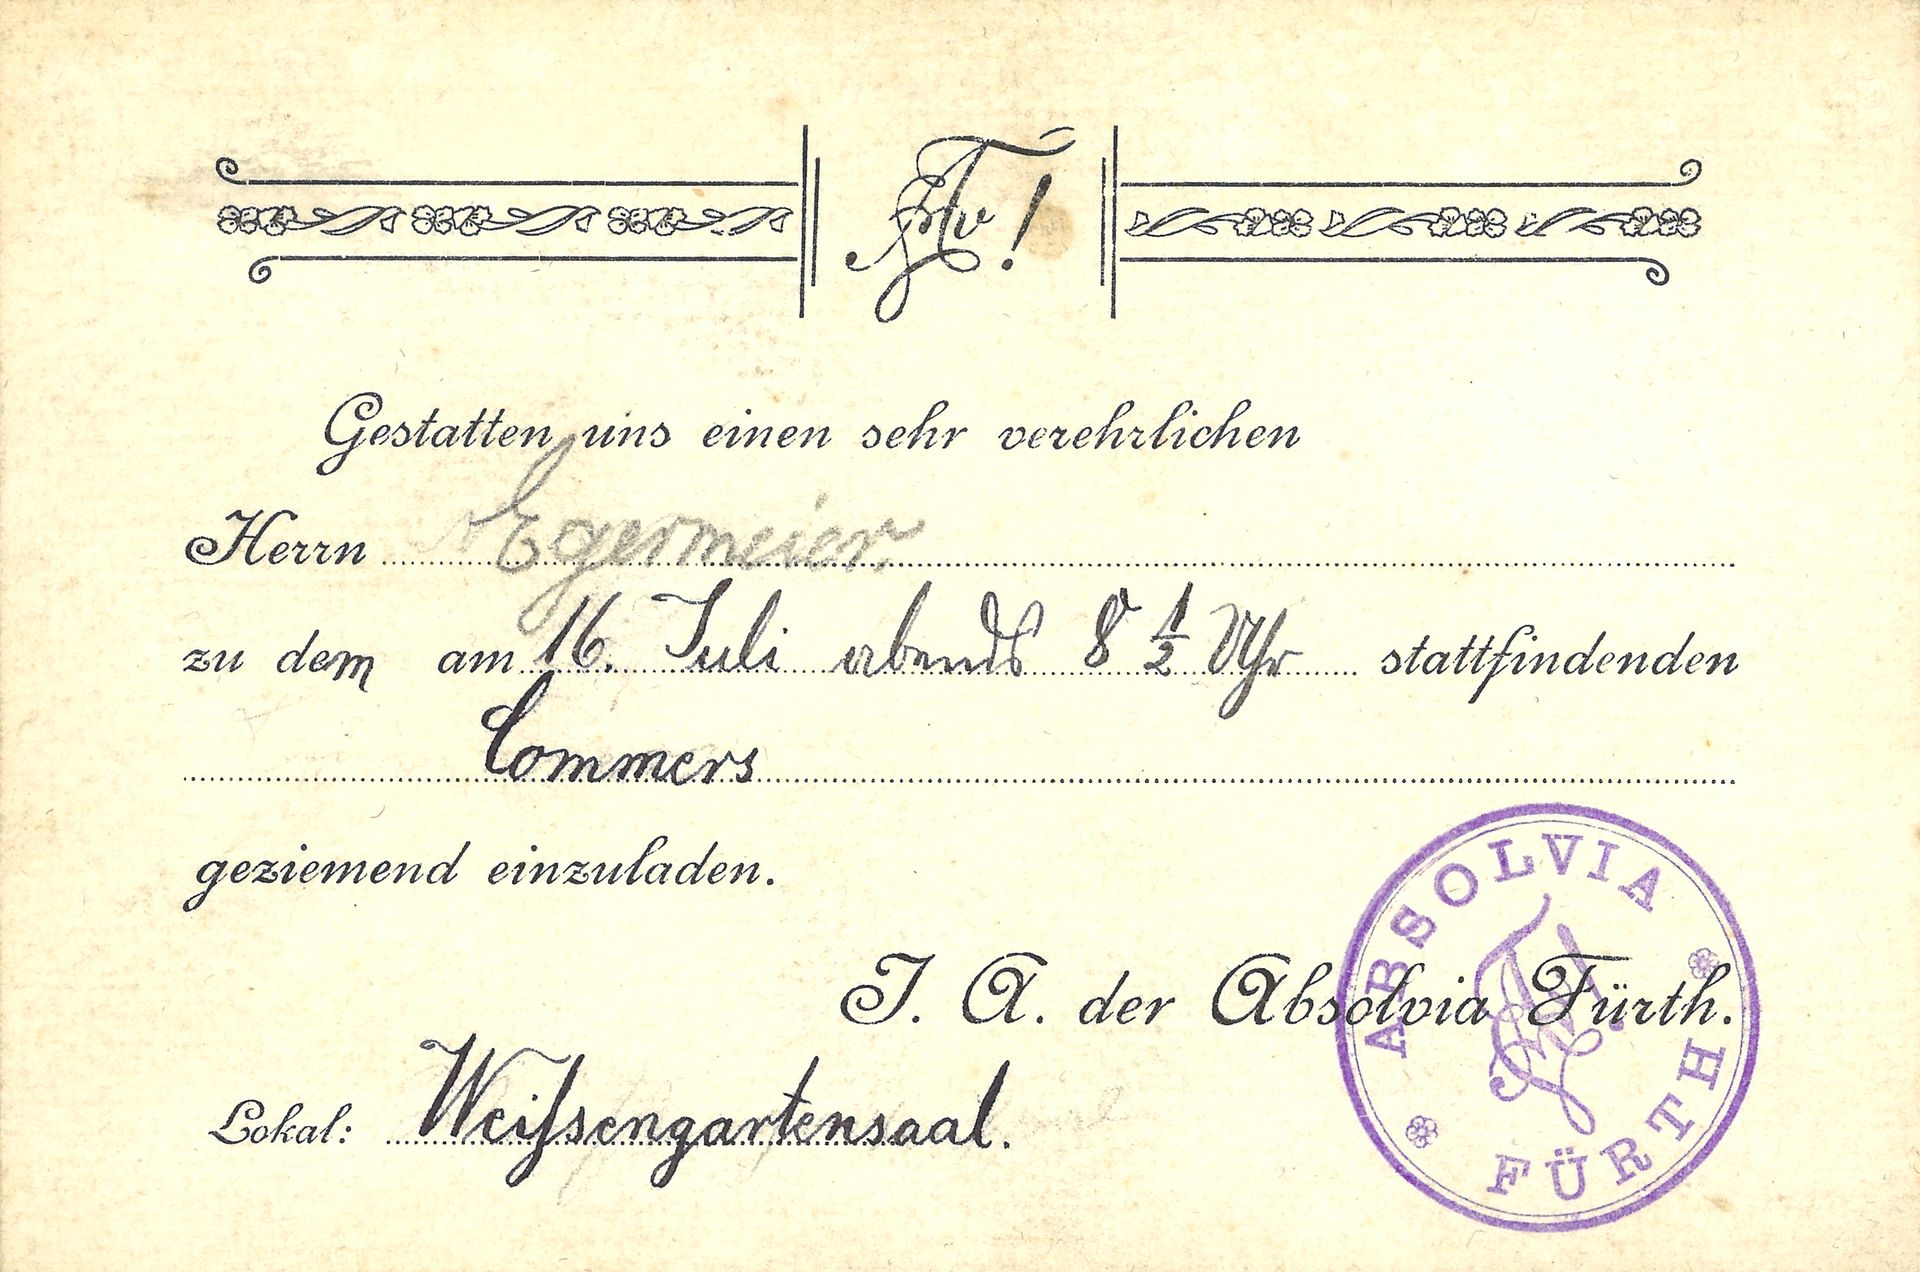 Gestatten uns einen sehr verehrlichen
Herrn Egermeier.
zu dem am 16. Juli abends 8 1/2 Uhr stattfindenden
Commers
geziemend einzuladen.
J. A. der Absolvia Fürth.
Lokal: Weißengartensaal.
ABSOLVIA
FÜRTH